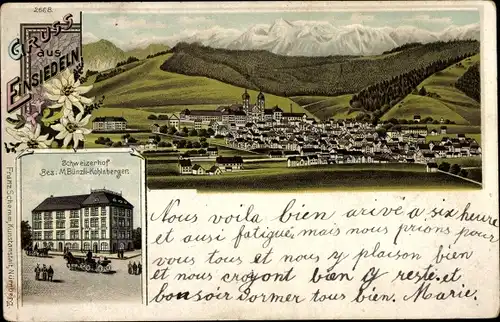 2668.
GRUSS
aus
EINSIEDELN
Schweizerhof
Bes. M. Bünzli-Kohlsberger.
Franz Schemm, Kunstanstalt, Nürnberg.
Nous voila bien arivé a six heure
et ausi fatigué, mais nous prions pour
vous tous et nous y plaison bien
et nous croyont bien y resté et
bonsoir dormer tous bien. Marie.